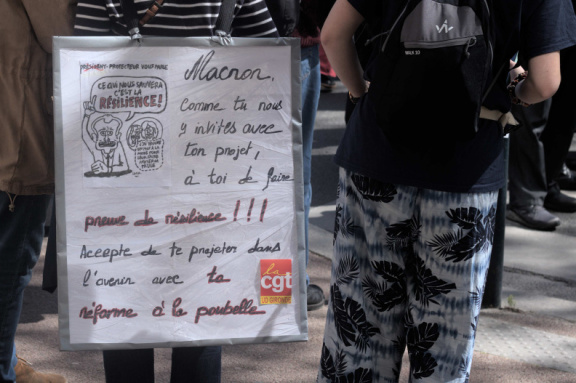 CE QUI NOUS SAUVERA
C'EST LA
RÉSILIENCE!
Macron,
comme tu nous
y invites avec
ton projet,
à toi de faire
preuve de résilience !!!
Accepte de te projeter dans
l'avenir avec ta
réforme à la poubelle
la
cgt
LA GIRONDE
vi